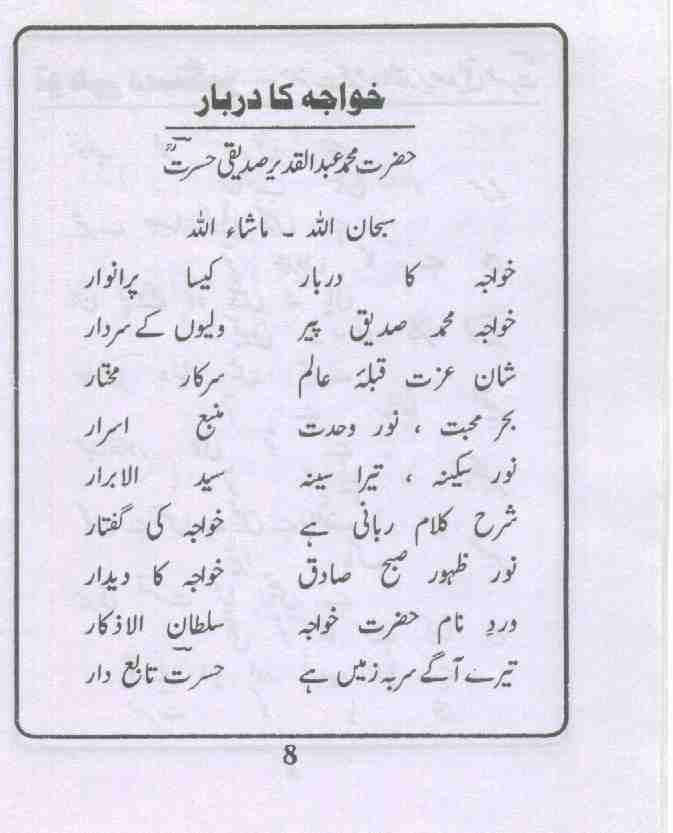 خواجہ کا دربار
حضرت محمد عبدالقدیر صدیقی حسرتؔؒ
سبحان اللہ ۔ ماشاء اللہ
خواجہ کا دربار کیسا پرانوار
خواجہ محمد صدیق پیر ولیوں کے سردار
شان عزت قبلۂ عالم سرکار مختار
بحر محبت ، نور وحدت منبع اسرار
نور سکینہ ، تیرا سینہ سید الابرار
شرح کلام ربانی ہے خواجہ کی گفتار
نور ظہور صبح صادق خواجہ کا دیدار
وردِ نام حضرت خواجہ سلطان الاذکار
تیرے آگے سربہ زمیں ہے حسرتؔ تابع دار
8